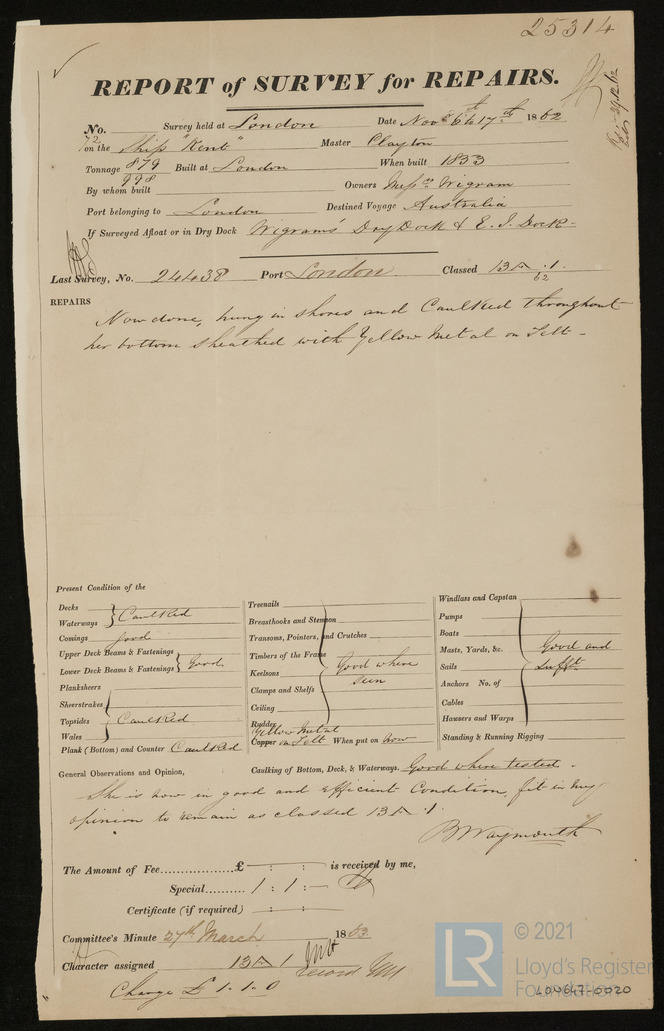 25314
REPORT of SURVEY for REPAIRS.
No. Survey held at London Date Nov 6th to 17th 1862
72 on the Ship "Kent" Master Clayton
Tonnage 879 998 Built at London When built 1853
By whom built Owners Messrs Wigram
Port belonging to London Destined Voyage Australia
If Surveyed Afloat or in Dry Dock Wigram's Dry Dock & E. I. Dock -
Last Survey, No. 24438 Port London Classed 13 A .1.
62
REPAIRS
Now done, hung in shores and Caulked throughout
her bottom sheathed with Yellow Metal on Felt -
Present Condition of the
Decks
Waterways Caulked
Comings good
Upper Deck Beams & Fastenings
Lower Deck Beams & Fastenings Good
Planksheers
Sheerstrakes
Topsides Caulked
Wales
Plank (Bottom) and Counter Caulked
Treenails
Breasthooks and Stemson
Transoms, Pointers, and Crutches
Timbers of the Frame
Keelsons Good where seen
Clamps and Shelfs
Ceiling
Rudder
Yellow Metal
Copper on Felt When put on Now
Windlass and Capstan
Pumps
Boats
Masts, Yards, &c. Good and
Sails Sufft.
Anchors No. of
Cables
Hawsers and Warps
Standing & Running Rigging
General Observations and Opinion, Caulking of Bottom, Deck, & Waterways. Good where tested -
She is now in good and efficient Condition, fit in my
opinion to remain as classed 13 A .1.
B Waymouth
The Amount of Fee £ : : is received by me,
Special 1 : 1 : -
Certificate (if required) : :
Committee's Minute 27th March 1863
Character assigned 13 A 1
record
Change £ 1. 1. 0
LR © 2021
Lloyd's Register
Foundation
LON647-0020